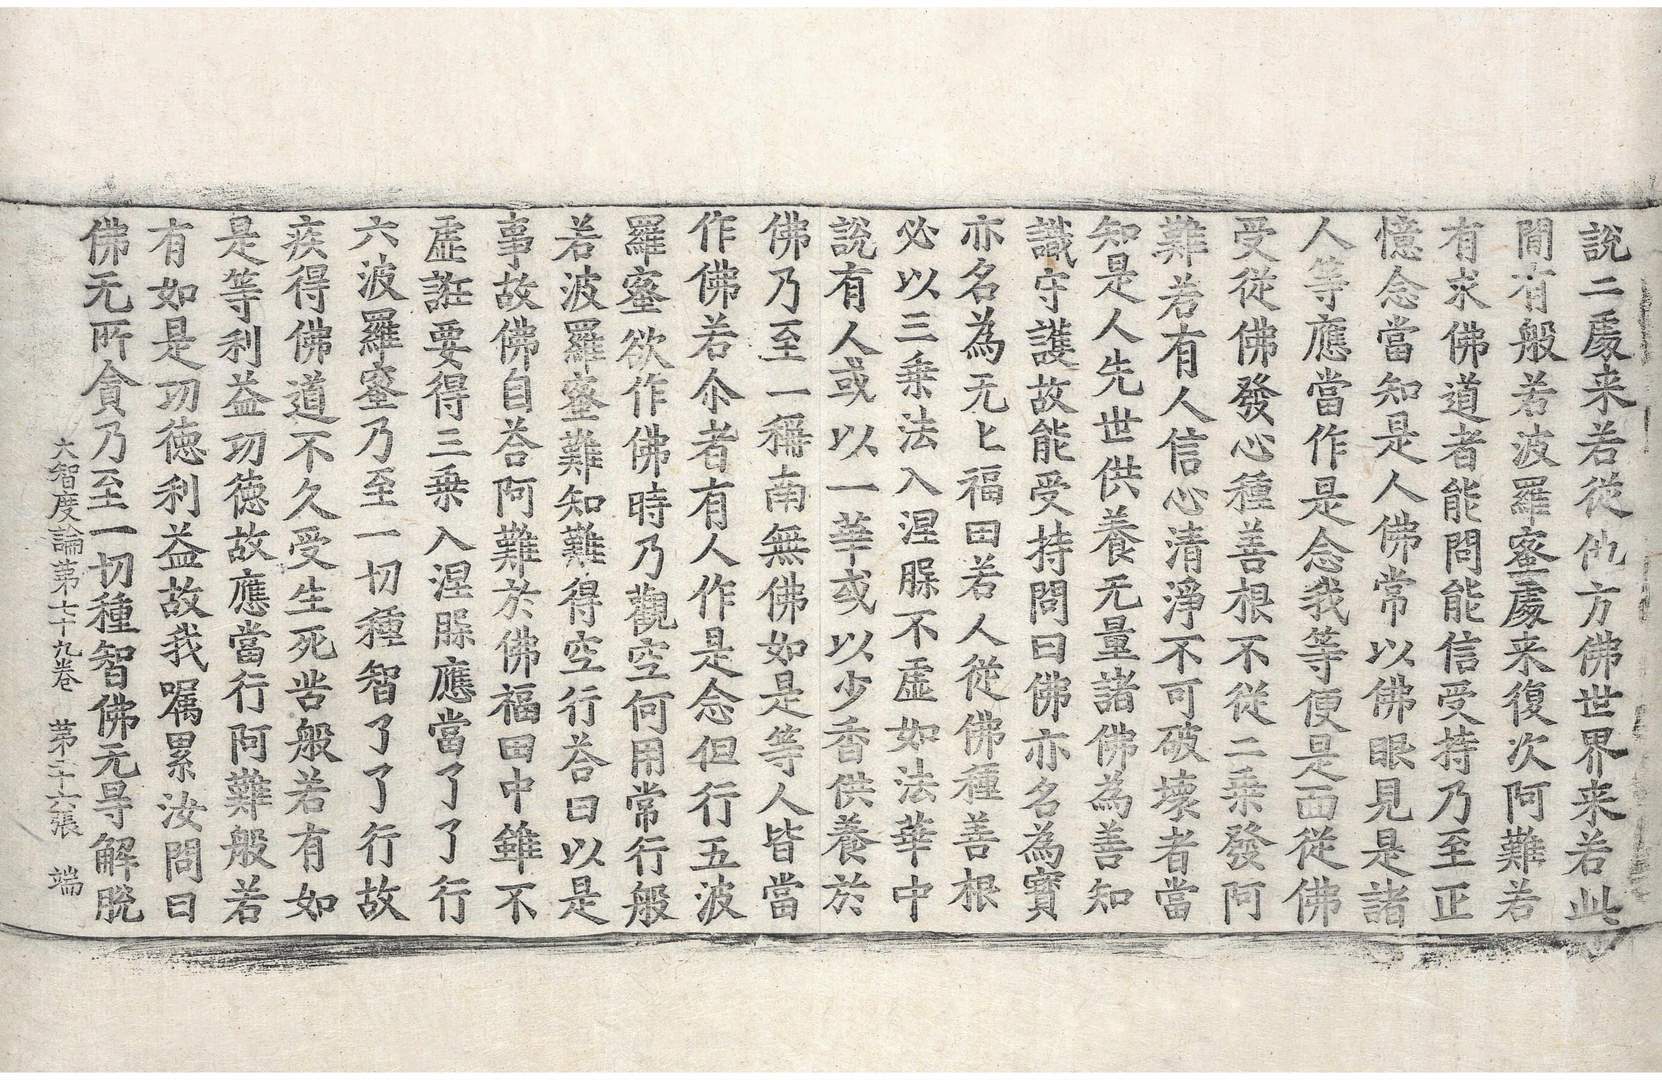 說二處来若從他方佛世界来若此
閒有般若波羅蜜處来復次阿難若
有求佛道者能問能信受持乃至正
憶念當知是人佛常以佛眼見是諸
人等應當作是念我等便是面從佛
受從佛發心種善根不從二乘發阿
難若有人信心清淨不可破壞者當
知是人先世供養无量諸佛為善知
識守護故能受持問曰佛亦名為寶
亦名為无上福田若人從佛種善根
必以三乘法入涅脲不虛如法華中
說有人或以一華或以少香供養於
佛乃至一稱南無佛如是等人皆當
作佛若尒者有人作是念但行五波
羅蜜欲作佛時乃觀空何用常行般
若波羅蜜難知難得空行荅曰以是
事故佛自荅阿難於佛福田中雖不
虛誑要得三乘入涅脲應當了了行
六波羅蜜乃至一切種智了了行故
疾得佛道不久受生死苦般若有如
是等利益功德故應當行阿難般若
有如是功德利益故我囑累汝問曰
佛无所貪乃至一切種智佛无㝵解脫
大智度論第七十九卷　第二十六張　端